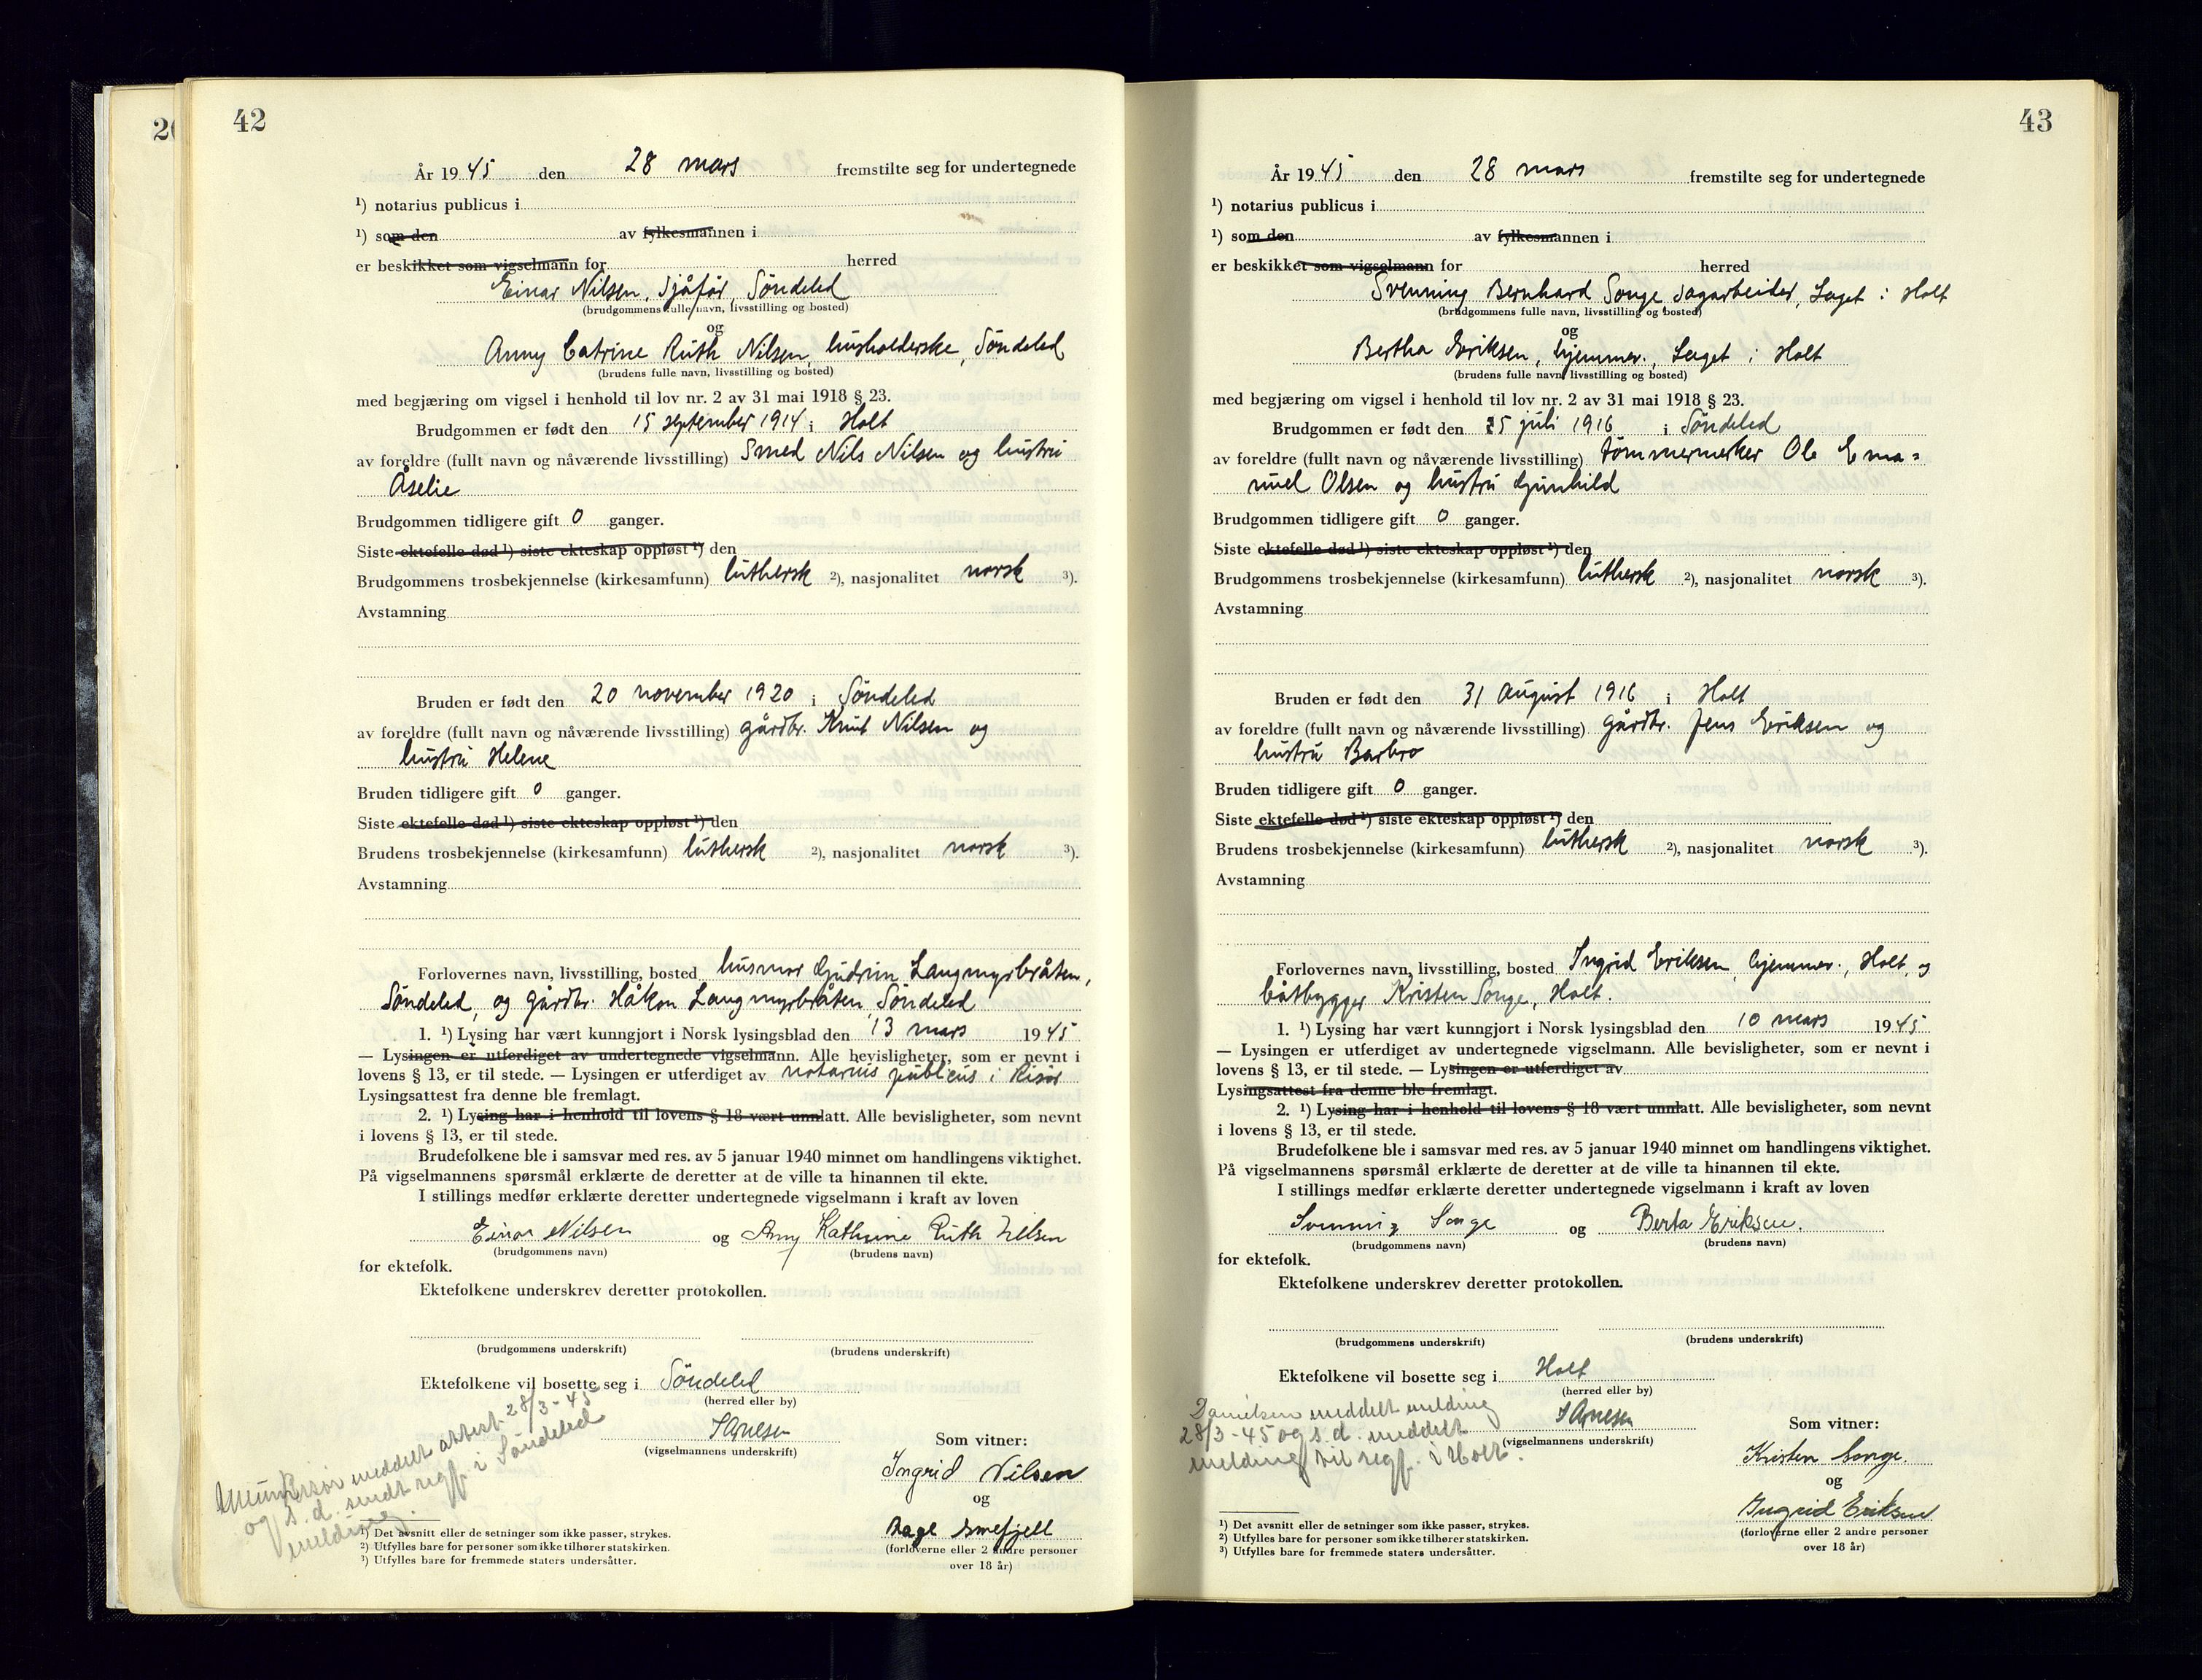 20
42
År 1945 den 28 mars fremstilte seg for undertegnede
¹) notarius publicus i
¹) som den av fylkesmannen i
er beskikket som vigselmann for herred
Einar Nilsen, Sjåfør, Söndeled
(brudgommens fulle navn, livsstilling og bosted)
og
Anny Catrine Ruth Nilsen, husholderske, Söndeled
(brudens fulle navn, livsstilling og bosted)
med begjæring om vigsel i henhold til lov nr. 2 av 31 mai 1918 § 23.
Brudgommen er født den 15 september 1914 i Holt
av foreldre (fullt navn og nåværende livsstilling) Smed Nils Nilsen og hustru
Åselie
Brudgommen tidligere gift 0 ganger.
Siste ektefelle død ¹) siste ekteskap oppløst ¹) den
Brudgommens trosbekjennelse (kirkesamfunn) luthersk ²), nasjonalitet norsk ³).
Avstamning
Bruden er født den 20 november 1920 i Söndeled
av foreldre (fullt navn og nåværende livsstilling) gårdbr. Knut Nilsen og
hustru Helene
Bruden tidligere gift 0 ganger.
Siste ektefelle død ¹) siste ekteskap oppløst ¹) den
Brudens trosbekjennelse (kirkesamfunn) luthersk ²), nasjonalitet norsk ³).
Avstamning
Forlovernes navn, livsstilling, bosted husmor Gudrun Langmyrbråten,
Söndeled, og gårdbr. Håkon Langmyrbråten, Söndeled
1. ¹) Lysing har vært kunngjort i Norsk lysingsblad den 13 mars 1945
— Lysingen er utferdiget av undertegnede vigselmann. Alle bevisligheter, som er nevnt i
lovens § 13, er til stede. — Lysingen er utferdiget av notarius publicus i Risør
Lysingsattest fra denne ble fremlagt.
2. ¹) Lysing har i henhold til lovens § 18 vært unnlatt. Alle bevisligheter, som nevnt
i lovens § 13, er til stede.
Brudefolkene ble i samsvar med res. av 5 januar 1940 minnet om handlingens viktighet.
På vigselmannens spørsmål erklærte de deretter at de ville ta hinannen til ekte.
I stillings medfør erklærte deretter undertegnede vigselmann i kraft av loven
Einar Nilsen og Anny Kathrine Ruth Nilsen
(brudgommens navn) (brudens navn)
for ektefolk.
Ektefolkene underskrev deretter protokollen.
(brudgommens underskrift) (brudens underskrift)
Ektefolkene vil bosette seg i Söndeled
(herred eller by)
(vigselmannens underskrift)
Som vitner:
Ingrid Nilsen
og
Dage
(forloverne eller 2 andre personer
over 18 år)
meddelt attest 28/3-45
og s.d. sendt regf. i Söndeled
melding.
¹) Det avsnitt eller de setninger som ikke passer, strykes.
²) Utfylles bare for personer som ikke tilhører statskirken.
³) Utfylles bare for fremmede staters undersåtter.
43
År 1945 den 28 mars fremstilte seg for undertegnede
¹) notarius publicus i
¹) som den av fylkesmannen i
er beskikket som vigselmann for herred
Svenning Bernhard Songe Sagarbeider, Laget i Holt
(brudgommens fulle navn, livsstilling og bosted)
og
Bertha Eriksen, hjemmev., Laget i Holt
(brudens fulle navn, livsstilling og bosted)
med begjæring om vigsel i henhold til lov nr. 2 av 31 mai 1918 § 23.
Brudgommen er født den 25 juli 1916 i Söndeled
av foreldre (fullt navn og nåværende livsstilling) tömmermerker Ole Ema=
nuel Olsen og hustru Gunhild
Brudgommen tidligere gift 0 ganger.
Siste ektefelle død ¹) siste ekteskap oppløst ¹) den
Brudgommens trosbekjennelse (kirkesamfunn) luthersk ²), nasjonalitet norsk ³).
Avstamning
Bruden er født den 31 august 1916 i Holt
av foreldre (fullt navn og nåværende livsstilling) gårdbr. Jens Eriksen og
hustru Barbro
Bruden tidligere gift 0 ganger.
Siste ektefelle død ¹) siste ekteskap oppløst ¹) den
Brudens trosbekjennelse (kirkesamfunn) luthersk ²), nasjonalitet norsk ³).
Avstamning
Forlovernes navn, livsstilling, bosted Ingrid Eriksen, hjemmev., Holt, og
båtbygger Kristen Songe, Holt.
1. ¹) Lysing har vært kunngjort i Norsk lysingsblad den 10 mars 1945
— Lysingen er utferdiget av undertegnede vigselmann. Alle bevisligheter, som er nevnt i
lovens § 13, er til stede. — Lysingen er utferdiget av
Lysingsattest fra denne ble fremlagt.
2. ¹) Lysing har i henhold til lovens § 18 vært unnlatt. Alle bevisligheter, som nevnt
i lovens § 13, er til stede.
Brudefolkene ble i samsvar med res. av 5 januar 1940 minnet om handlingens viktighet.
På vigselmannens spørsmål erklærte de deretter at de ville ta hinannen til ekte.
I stillings medfør erklærte deretter undertegnede vigselmann i kraft av loven
Svenning Songe og Berta Eriksen.
(brudgommens navn) (brudens navn)
for ektefolk.
Ektefolkene underskrev deretter protokollen.
(brudgommens underskrift) (brudens underskrift)
Ektefolkene vil bosette seg i Holt
(herred eller by)
(vigselmannens underskrift)
Danielsen meddelt melding
28/3-45 og s.d. meddelt
melding til regf. i Holt.
Som vitner:
Kristen Songe.
og
Ingrid Eriksen
(forloverne eller 2 andre personer
over 18 år)
¹) Det avsnitt eller de setninger som ikke passer, strykes.
²) Utfylles bare for personer som ikke tilhører statskirken.
³) Utfylles bare for fremmede staters undersåtter.